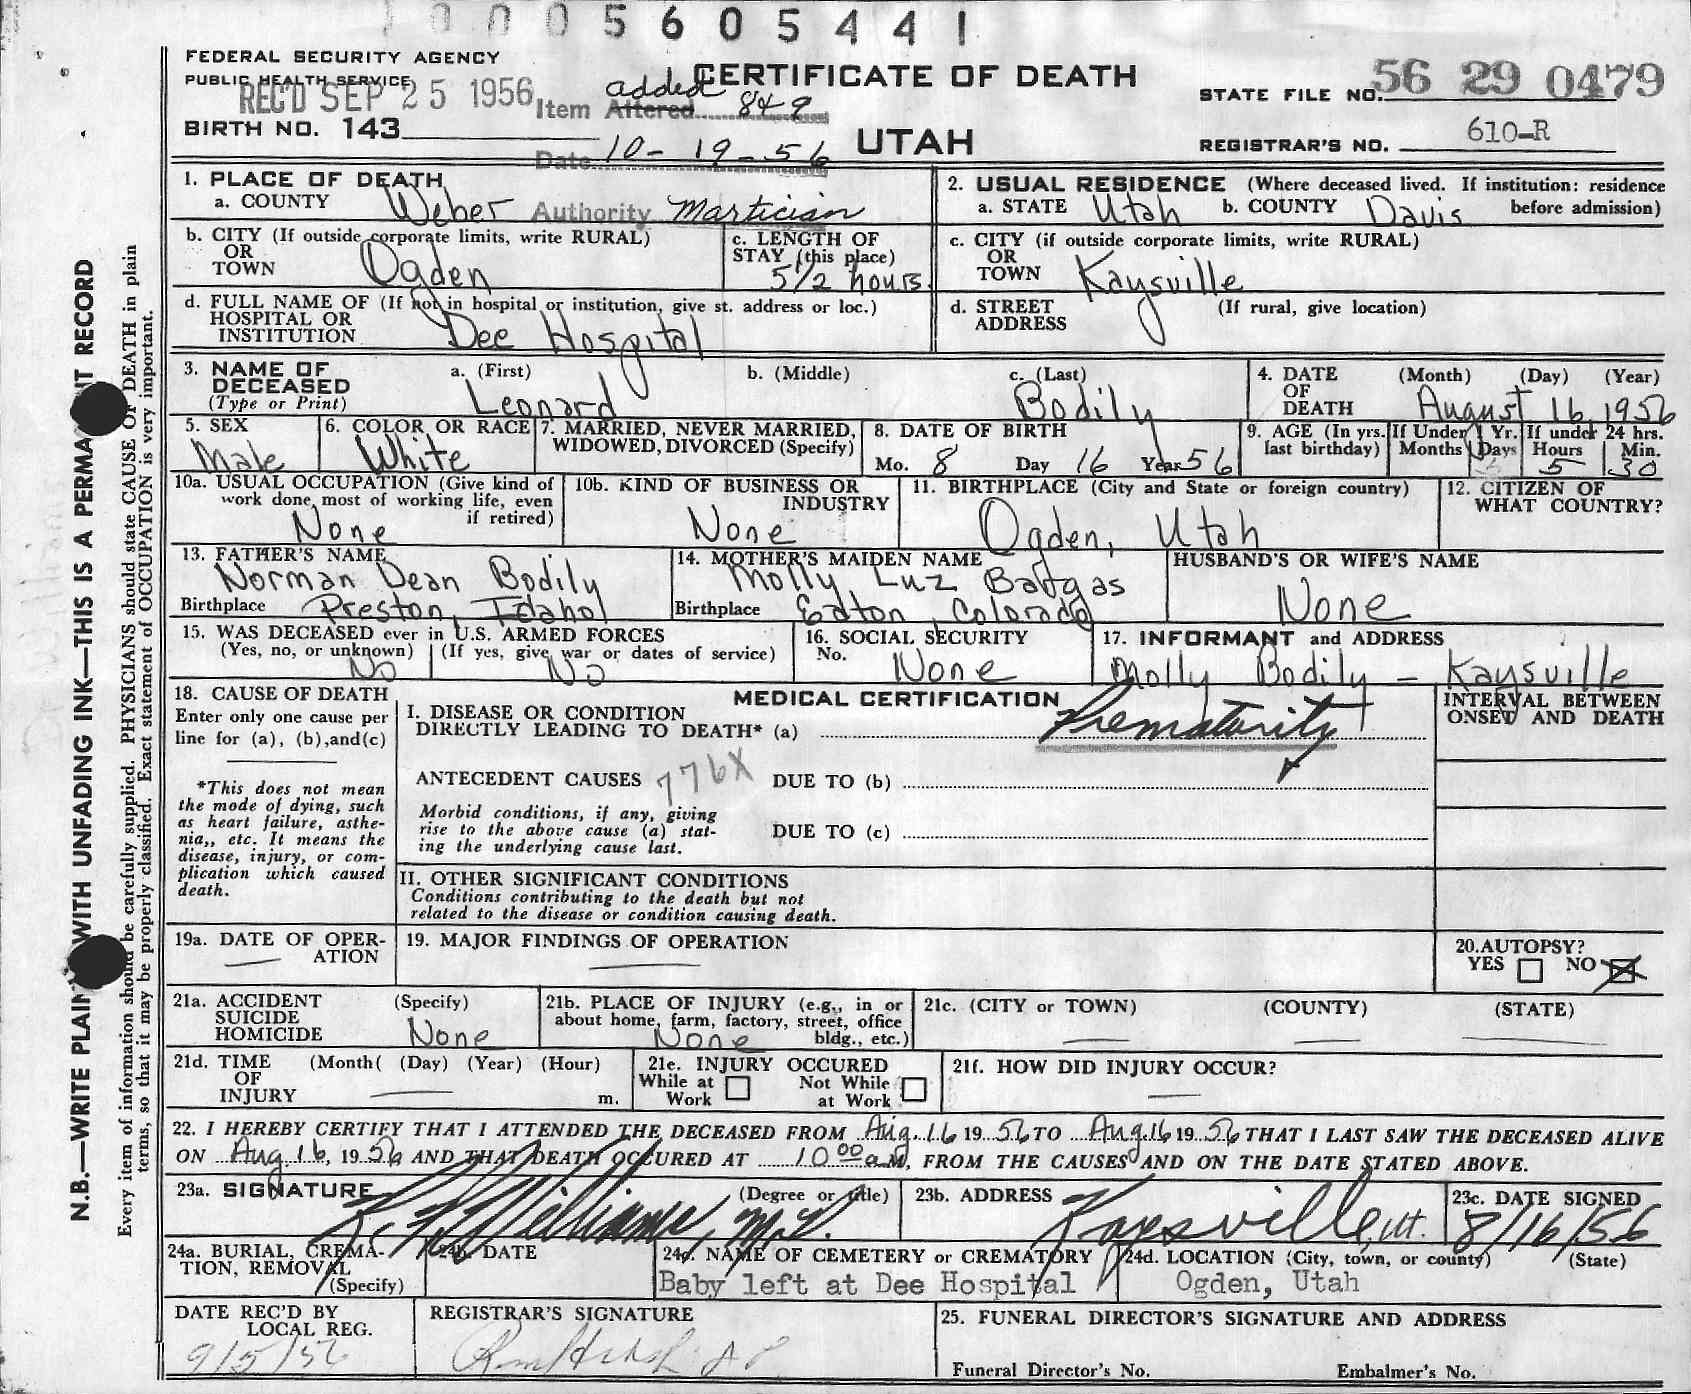 0005605441
FEDERAL SECURITY AGENCY
PUBLIC HEALTH SERVICE
REC'D SEP 25 1956
Item Altered added 8 & 9
CERTIFICATE OF DEATH
STATE FILE NO. 56 29 0479
BIRTH NO. 143
Date 10-19-56
UTAH
REGISTRAR'S NO. 610-R
1. PLACE OF DEATH
a. COUNTY Weber
Authority Martician
2. USUAL RESIDENCE (Where deceased lived. If institution: residence before admission)
a. STATE Utah b. COUNTY Davis
b. CITY (If outside corporate limits, write RURAL)
OR
TOWN Ogden
c. LENGTH OF
STAY (this place)
5 1/2 hours
c. CITY (if outside corporate limits, write RURAL)
OR
TOWN Kaysville
d. FULL NAME OF (If not in hospital or institution, give st. address or loc.)
HOSPITAL OR
INSTITUTION Dee Hospital
d. STREET
ADDRESS (If rural, give location)
3. NAME OF
DECEASED
(Type or Print)
a. (First) Leonard
b. (Middle)
c. (Last) Bodily
4. DATE
OF
DEATH
(Month) (Day) (Year)
August 16 1956
5. SEX
Male
6. COLOR OR RACE
White
7. MARRIED, NEVER MARRIED,
WIDOWED, DIVORCED (Specify)
8. DATE OF BIRTH
Mo. 8 Day 16 Year 56
9. AGE (In yrs. last birthday)
If Under 1 Yr.
Months Days
If under 24 hrs.
Hours Min.
5 30
10a. USUAL OCCUPATION (Give kind of
work done, most of working life, even
if retired)
None
10b. KIND OF BUSINESS OR
INDUSTRY
None
11. BIRTHPLACE (City and State or foreign country)
Ogden, Utah
12. CITIZEN OF
WHAT COUNTRY?
13. FATHER'S NAME
Norman Dean Bodily
Birthplace Preston, Idaho
14. MOTHER'S MAIDEN NAME
Molly Luz
Birthplace Eaton, Colorado
HUSBAND'S OR WIFE'S NAME
None
15. WAS DECEASED ever in U.S. ARMED FORCES
(Yes, no, or unknown) (If yes, give war or dates of service)
No No
16. SOCIAL SECURITY
No. None
17. INFORMANT and ADDRESS
Molly Bodily - Kaysville
18. CAUSE OF DEATH
Enter only one cause per
line for (a), (b), and (c)
*This does not mean
the mode of dying, such
as heart failure, asthe-
nia,, etc. It means the
disease, injury, or com-
plication which caused
death.
MEDICAL CERTIFICATION
I. DISEASE OR CONDITION
DIRECTLY LEADING TO DEATH* (a) Prematurity
INTERVAL BETWEEN
ONSET AND DEATH
ANTECEDENT CAUSES 776X DUE TO (b)
Morbid conditions, if any, giving
rise to the above cause (a) stat-
ing the underlying cause last.
DUE TO (c)
II. OTHER SIGNIFICANT CONDITIONS
Conditions contributing to the death but not
related to the disease or condition causing death.
19a. DATE OF OPER-
ATION
19. MAJOR FINDINGS OF OPERATION
20. AUTOPSY?
YES NO
21a. ACCIDENT (Specify)
SUICIDE
HOMICIDE None
21b. PLACE OF INJURY (e.g., in or
about home, farm, factory, street, office
bldg., etc.)
None
21c. (CITY or TOWN) (COUNTY) (STATE)
21d. TIME (Month( (Day) (Year) (Hour)
OF
INJURY m.
21e. INJURY OCCURED
While at Work
Not While at Work
21f. HOW DID INJURY OCCUR?
22. I HEREBY CERTIFY THAT I ATTENDED THE DECEASED FROM Aug. 16 1956 TO Aug. 16 1956 THAT I LAST SAW THE DECEASED ALIVE
ON Aug. 16, 1956 AND THAT DEATH OCCURED AT 10 00 a M, FROM THE CAUSES AND ON THE DATE STATED ABOVE.
23a. SIGNATURE (Degree or title)
Williams, M.D.
23b. ADDRESS
Kaysville, Ut.
23c. DATE SIGNED
8/16/56
24a. BURIAL, CREMA-
TION, REMOVAL
(Specify)
24b. DATE
24c. NAME OF CEMETERY or CREMATORY
Baby left at Dee Hospital
24d. LOCATION (City, town, or county) (State)
Ogden, Utah
DATE REC'D BY
LOCAL REG.
9/5/56
REGISTRAR'S SIGNATURE
25. FUNERAL DIRECTOR'S SIGNATURE AND ADDRESS
Funeral Director's No. Embalmer's No.
N.B.—WRITE PLAIN WITH UNFADING INK—THIS IS A PERMANENT RECORD
Every item of information should be carefully supplied. PHYSICIANS should state CAUSE OF DEATH in plain
terms, so that it may be properly classified. Exact statement of OCCUPATION is very important.